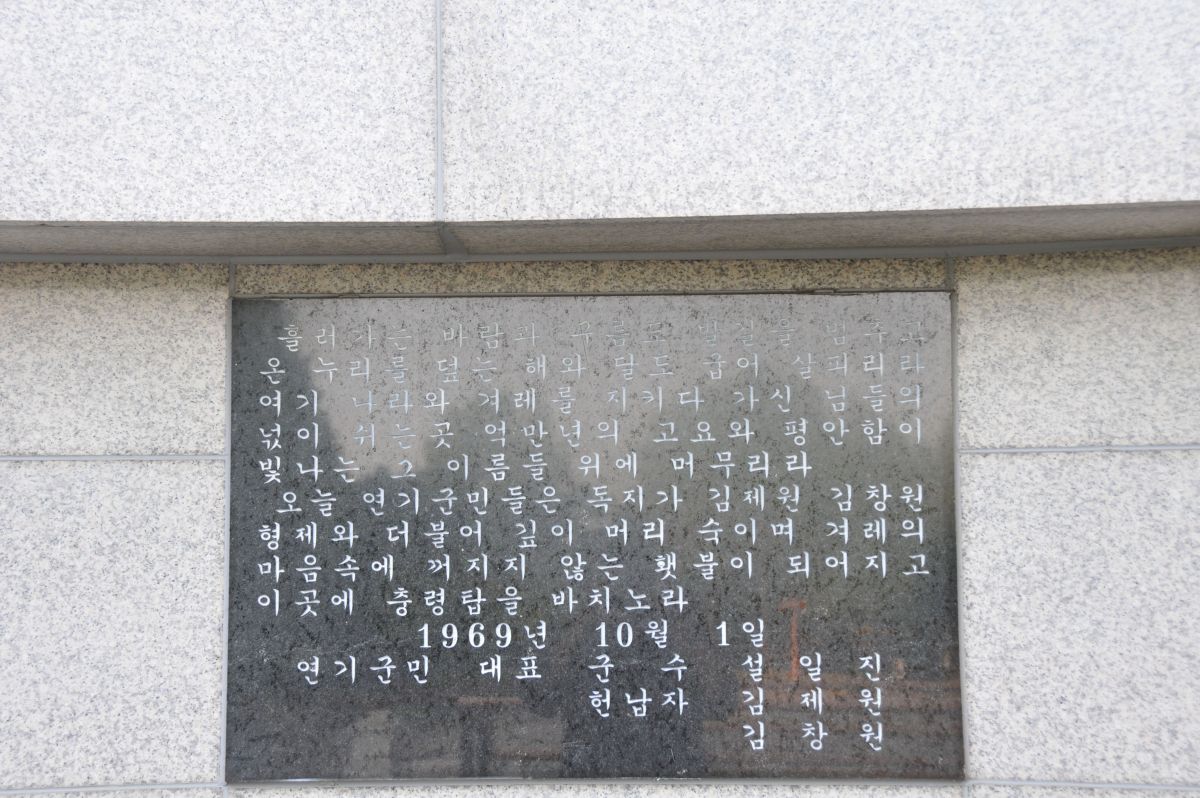 흘러가는 바람과 구름도 발길을 멈추고
온 누리를 덮는 해와 달도 굽어 살피리라
여기 나라와 겨레를 지키다 가신 님들의
넋이 쉬는곳 억만년의 고요와 평안함이
빛나는 그 이름들 위에 머무리라
오늘 연기군민들은 독지가 김제원 김창원
형제와 더불어 깊이 머리 숙이며 겨레의
마음속에 꺼지지 않는 횃불이 되어지고
이곳에 충령탑을 바치노라
1969년 10월 1일
연기군민 대표 군 수 설 일 진
헌납자 김 제 원
김 창 원